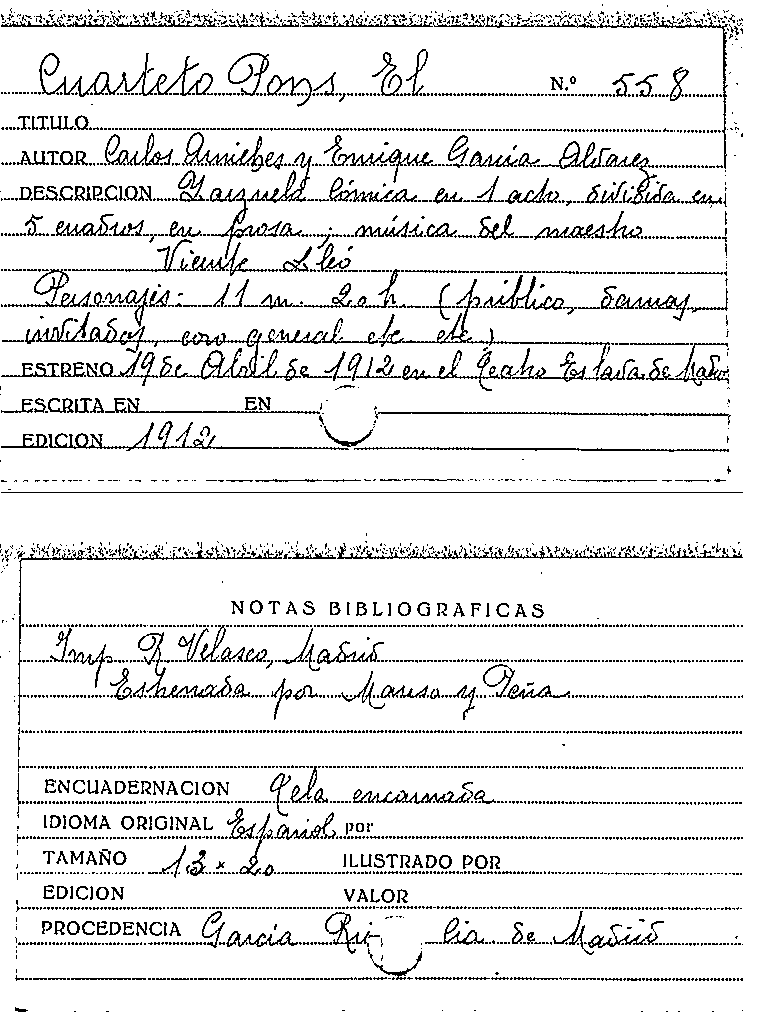 Cuarteto Pons, El N.º 558
TITULO
AUTOR Carlos Arniches y Enrique García Alvarez
DESCRIPCION Zarzuela cómica en 1 acto, dividida en
5 cuadros, en prosa; música del maestro
Vicente Lleó
Personajes: 11 m. 20 h. (público, damas,
invitados, coro general etc. etc.)
ESTRENO 19 de Abril de 1912 en el Teatro Eslava de Madrid
ESCRITA EN EN
EDICION 1912
NOTAS BIBLIOGRAFICAS
Imp R. Velasco, Madrid
Estrenada por Manso y Peña
ENCUADERNACION Tela encarnada
IDIOMA ORIGINAL Español por
TAMAÑO 13 x 20 ILUSTRADO POR
EDICION VALOR
PROCEDENCIA García de Madrid